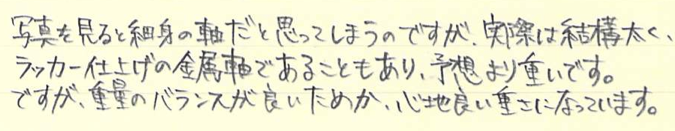 写真を見ると細身の軸だと思ってしまうのですが、実際は結構太く、
ラッカー仕上げの金属軸であることもあり、予想より重いです。
ですが、重量のバランスが良いためか、心地良い重さになっています。